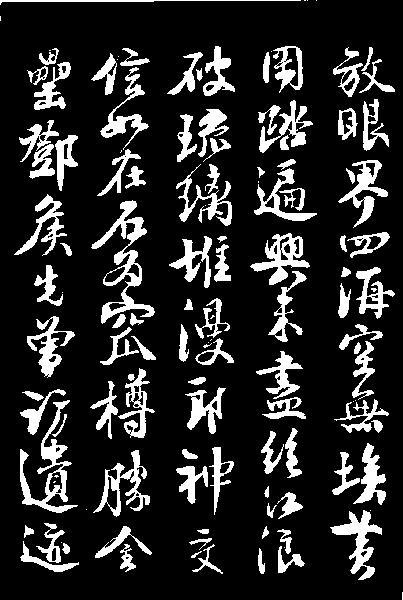 放眼界四海空無埃黃
岡踏遍興未盡絕江浪
破琉璃堆漫郎神交
信如在石為窊樽勝金
罍鄧侯先曾訪遺迹